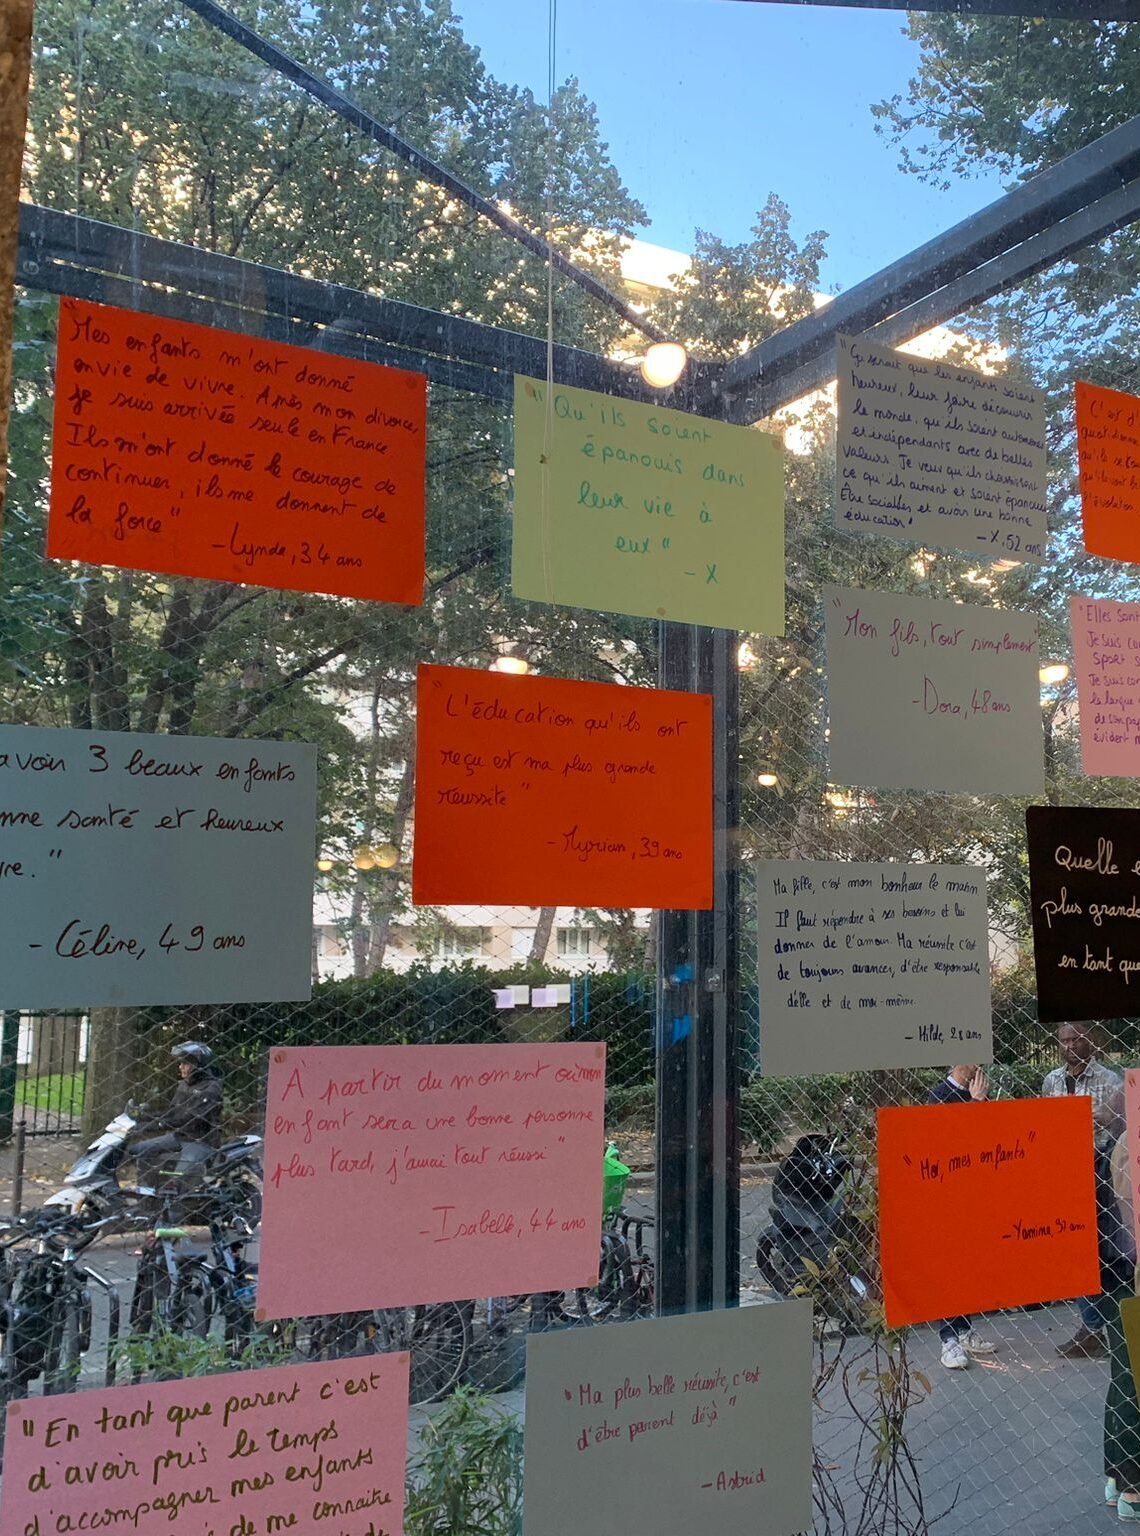 "Mes enfants m'ont donné
envie de vivre. Après mon divorce,
je suis arrivée seule en France
Ils m'ont donné le courage de
continuer, ils me donnent de
la force"
- Lynda, 34 ans
"Qu'ils soient
épanouis dans
leur vie à
eux"
- X
"Ça serait que les enfants soient
heureux, leur faire découvrir
le monde, qu'ils soient autonomes
et indépendants avec de belles
valeurs. Je veux qu'ils choisissent
ce qu'ils aiment et soient épanouis
Être sociables et avoir une bonne
éducation"
- X, 52 ans
"C'est
"Mon fils, tout simplement"
- Dora, 48 ans
"Elles sont
Je suis
Sport
Je suis
la langue
de son
évident
"L'éducation qu'ils ont
reçu est ma plus grande
réussite"
- Myriam, 39 ans
avoir 3 beaux enfants
nne santé et heureux
re."
- Céline, 49 ans
Quelle e
plus grand
en tant que
Ma fille, c'est mon bonheur le matin
Il faut répendre à ses besoins et lui
donner de l'amour. Ma réussite c'est
de toujours avancer, d'être responsable
d'elle et de moi-même.
- Hilde, 28 ans
À partir du moment où mon
enfant sera une bonne personne
plus tard, j'aurai tout réussi"
- Isabelle, 44 ans
"Moi, mes enfants"
- Yamina, 37 ans
"Ma plus belle réussite, c'est
d'être parent déjà."
- Astrid
"En tant que parent c'est
d'avoir pris le temps
d'accompagner mes enfants
de me connaitre